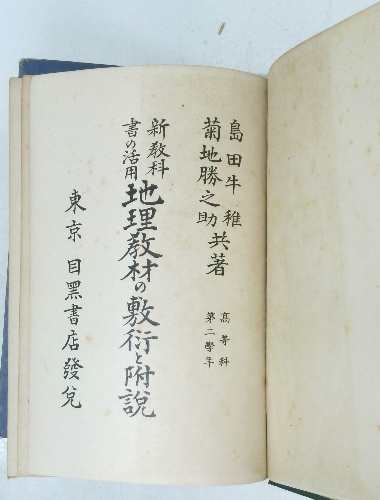 島田牛稚
菊地勝之助
共著
高等科
第二學年
新教科
書の活用
地理教材の敷衍と附說
東京 目黑書店發兌